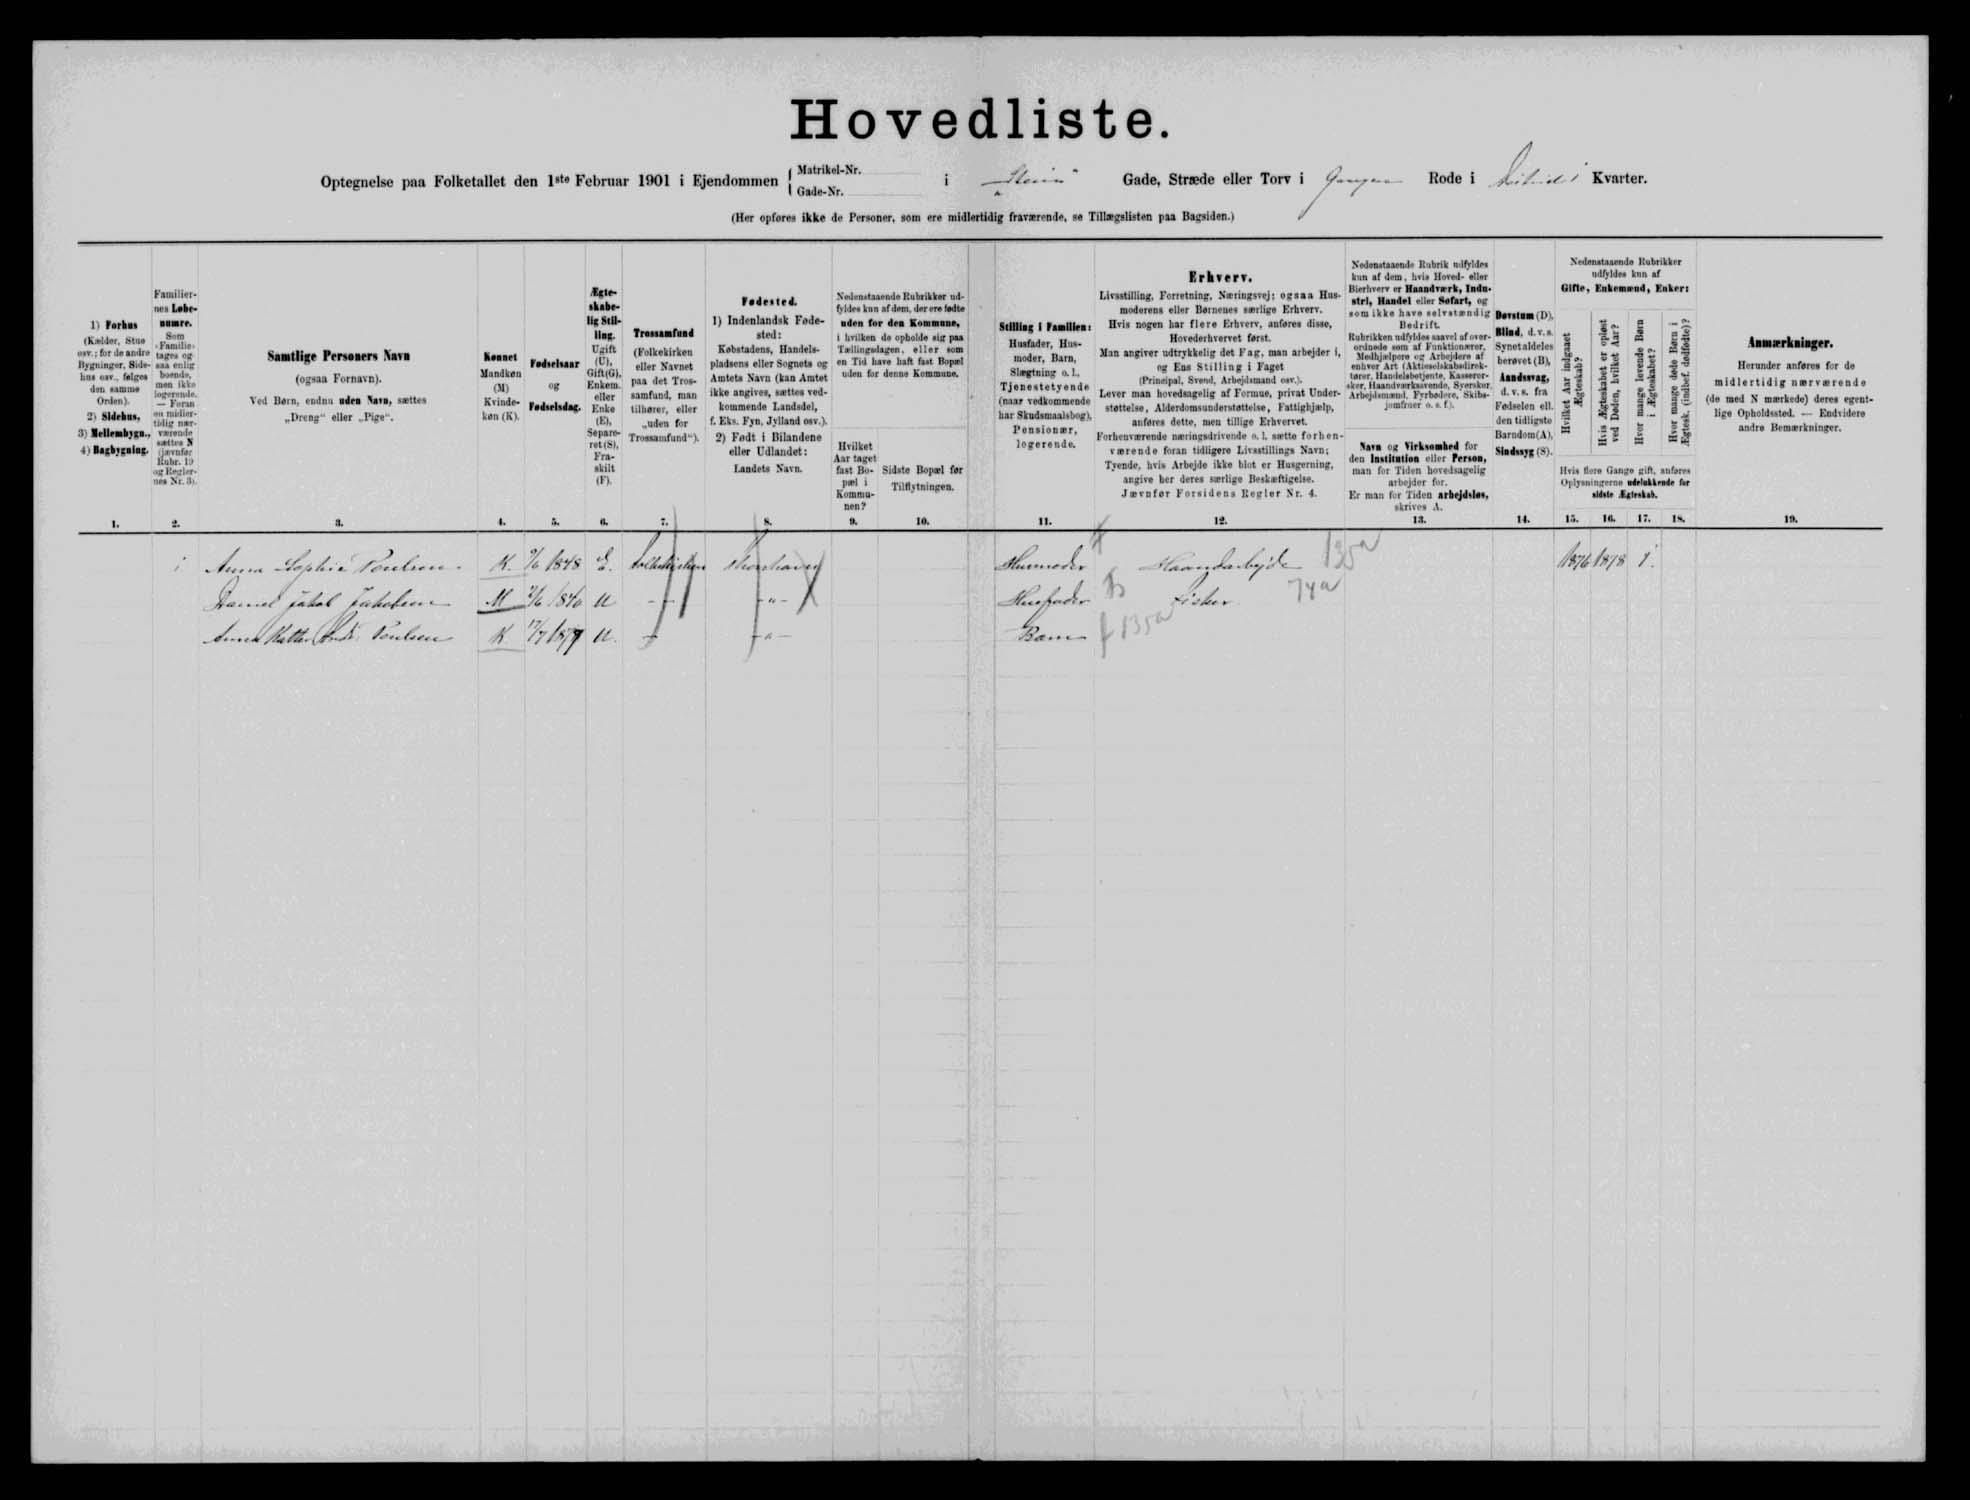 Hovedliste.
Optegnelse paa Folketallet den 1ste Februar 1901 i Ejendommen { Matrikel-Nr. Gade-Nr. i Gade, Stræde eller Torv i Rode i Kvarter.
(Her opføres ikke de Personer, som ere midlertidig fraværende, se Tillægslisten paa Bagsiden.)
1) Forhus
(Kælder, Stue
osv.; for de andre
Bygninger, Side-
hus osv., følges
den samme
Orden).
2) Sidehus,
3) Mellembygn.,
4) Bagbygning.
1.
Familier-
nes Løbe-
numre.
Som
»Familie»
tages og-
saa enlig
boende,
men ikke
logerende.
— Foran
en midler-
tidig nær-
værende
sættes N
(jævnfør
Rubr. 19
og Regler-
nes Nr. 3).
2.
Samtlige Personers Navn
(ogsaa Fornavn).
Ved Børn, endnu uden Navn, sættes
„Dreng“ eller „Pige“.
3.
Kønnet
Mandkøn
(M)
Kvinde-
køn (K).
4.
Fødselsaar
og
Fødselsdag.
5.
Ægte-
skabe-
lig Stil-
ling.
Ugift
(U),
Gift(G),
Enkem.
eller
Enke
(E),
Separe-
ret (S),
Fra-
skilt
(F).
6.
Trossamfund
(Folkekirken
eller Navnet
paa det Tros-
samfund, man
tilhører, eller
„uden for
Trossamfund“).
7.
Fødested.
1) Indenlandsk Føde-
sted:
Købstadens, Handels-
pladsens eller Sognets og
Amtets Navn (kan Amtet
ikke angives, sættes ved-
kommende Landsdel,
f. Eks. Fyn, Jylland osv.).
2) Født i Bilandene
eller Udlandet:
Landets Navn.
8.
Nedenstaaende Rubrikker ud-
fyldes kun af dem, der ere fødte
uden for den Kommune,
i hvilken de opholde sig paa
Tællingsdagen, eller som
en Tid have haft fast Bopæl
uden for denne Kommune.
Hvilket
Aar taget
fast Bo-
pæl i
Kommu-
nen?
9.
Sidste Bopæl før
Tilflytningen.
10.
Stilling i Familien:
Husfader, Hus-
moder, Barn,
Slægtning o. l.,
Tjenestetyende
(naar vedkommende
har Skudsmaalsbog),
Pensionær,
logerende.
11.
Erhverv.
Livsstilling, Forretning, Næringsvej; ogsaa Hus-
moderens eller Børnenes særlige Erhverv.
Hvis nogen har flere Erhverv, anføres disse,
Hovederhvervet først.
Man angiver udtrykkelig det Fag, man arbejder i,
og Ens Stilling i Faget
(Principal, Svend, Arbejdsmand osv.).
Lever man hovedsagelig af Formue, privat Under-
støttelse, Alderdomsunderstøttelse, Fattighjælp,
anføres dette, men tillige Erhvervet.
Forhenværende næringsdrivende o. l. sætte forhen-
værende foran tidligere Livsstillings Navn;
Tyende, hvis Arbejde ikke blot er Husgerning,
angive her deres særlige Beskæftigelse.
Jævnfør Forsidens Regler Nr. 4.
12.
Nedenstaaende Rubrik udfyldes
kun af dem, hvis Hoved- eller
Bierhverv er Haandværk, Indu-
stri, Handel eller Søfart, og
som ikke have selvstændig
Bedrift.
Rubrikken udfyldes saavel af over-
ordnede som af Funktionærer,
Medhjælpere og Arbejdere af
enhver Art (Aktieselskabsdirek-
tører, Handelsbetjente, Kasserer-
sker, Haandværkssvende, Syersker,
Arbejdsmænd, Fyrbødere, Skibs-
jomfruer o. s. f.).
Navn og Virksomhed for
den Institution eller Person,
man for Tiden hovedsagelig
arbejder for.
Er man for Tiden arbejdsløs,
skrives A.
13.
Døvstum (D),
Blind, d. v. s.
Synet aldeles
berøvet (B),
Aandssvag,
d. v. s. fra
Fødselen ell.
den tidligste
Barndom(A),
Sindssyg (S).
14.
Nedenstaaende Rubrikker
udfyldes kun af
Gifte, Enkemænd, Enker:
Hvilket Aar indgaaet Ægteskab?
Hvis Ægteskabet er opløst ved Døden, hvilket Aar?
Hvor mange levende Børn i Ægteskabet?
Hvor mange døde Børn i Ægtesk. (indbef. dødfødte)?
Hvis flere Gange gift, anføres
Oplysningerne udelukkende for
sidste Ægteskab.
15. 16. 17. 18.
Anmærkninger.
Herunder anføres for de
midlertidig nærværende
(de med N mærkede) deres egent-
lige Opholdssted. — Endvidere
andre Bemærkninger.
19.
1 Anna Sophie Poulsen K. 1848 E. Folkekirken Thorshavn Husmoder Haandarbejde 135a 1876 1878 1.
Daniel Jakob Jakobsen M 1840 U — -„- Husfader Fisker 74a
Anna Poulsen K 17/7 U. — -„- Barn f 135a